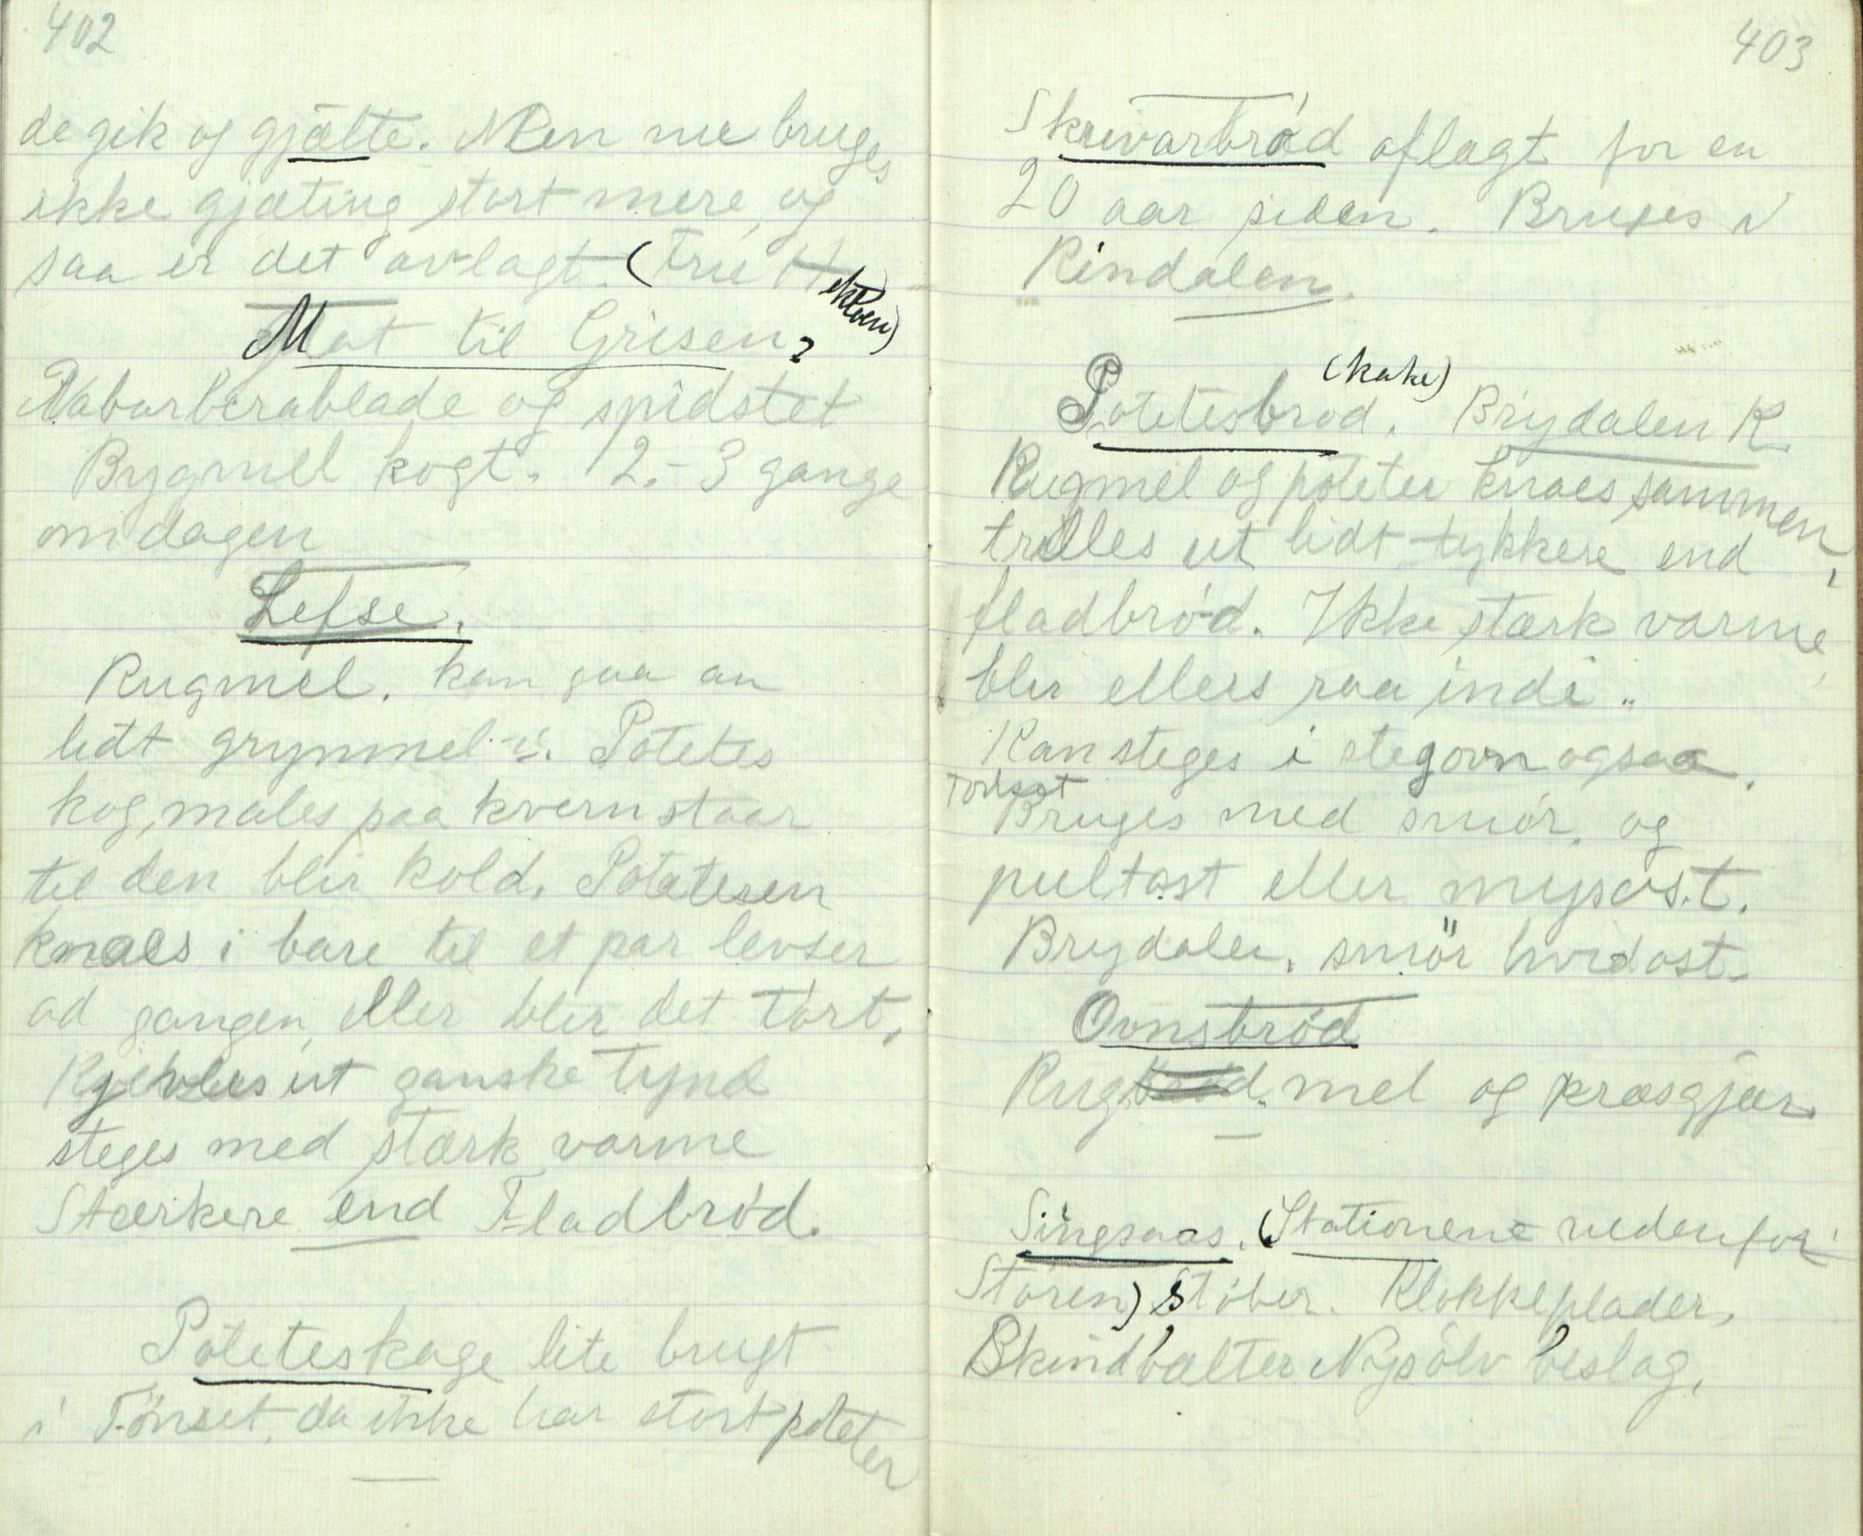 402
de gik og gjætte. Men nu bruges
ikke gjæting stort mere, og
saa er det avlagt. (Fru
Mat til Grisen.
Rabarberablade og spidstet
Bygmel kogt. 2-3 gange
om dagen
Lefse.
Rugmel. kan gaa an
lidt grynmel i. Potetes
kog, males paa kvern staar
til den blir kold. Potatesen
knaes i bare til et par levser
ad gangen, eller blir det tørt.
Kjevles ut ganske tynd
steges med stærk varme
Stærkere end Fladbrød.
Poteteskage lite brugt
i Tønset, da ikke har stort poteter
403
Skrivarbrød aflagt for en
20 aar siden. Bruges i
Rindalen.
(kake)
Potetesbrød. Brydalen K
Rugmel og poteter knaes sammen,
trilles ut lidt tykkere end
fladbrød. Ikke stærk varme,
blir ellers raa indi.
Kan steges i stegovn ogsaa.
Torlsat
Bruges med smør, og
pultost eller mysost.
Brydalen. smör hvidost.
Ovnsbrød
Rugbrød. mel og præsgjær
Singsaas. (Stationene nedenfor
Støren) Støber. Klokkeplader,
Skindbælter Nysølv beslag.